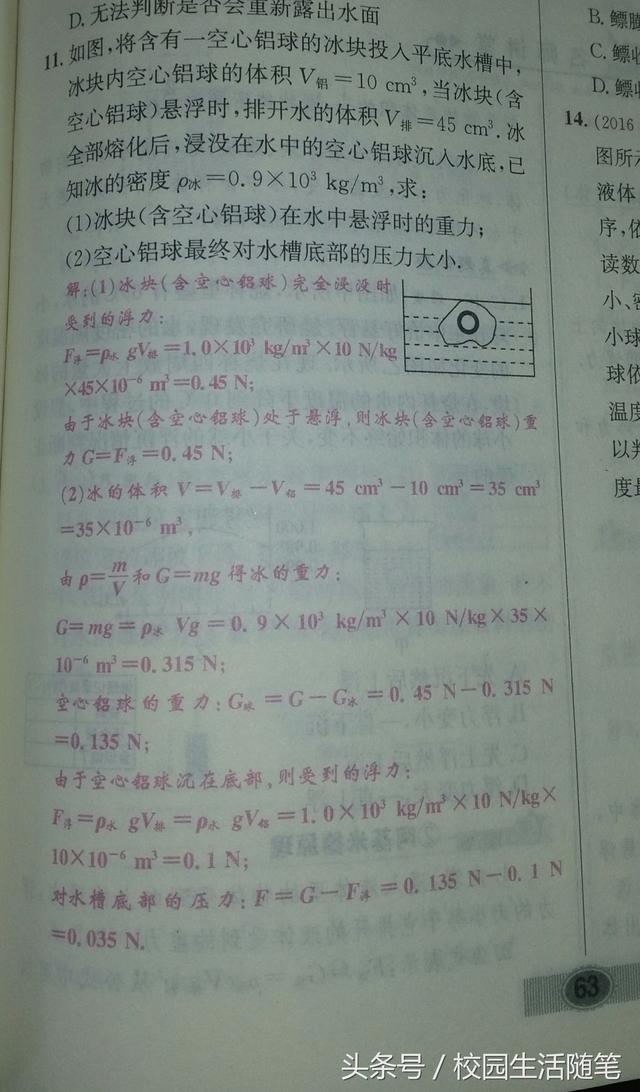 D. 无法判断是否会重新露出水面
11. 如图,将含有一空心铝球的冰块投入平底水槽中,
冰块内空心铝球的体积 V铝=10 cm³,当冰块(含
空心铝球)悬浮时,排开水的体积 V排=45 cm³.冰
全部熔化后,浸没在水中的空心铝球沉入水底,已
知冰的密度 ρ冰=0.9×10³ kg/m³,求:
(1)冰块(含空心铝球)在水中悬浮时的重力;
(2)空心铝球最终对水槽底部的压力大小.
解:(1)冰块(含空心铝球)完全浸没时
受到的浮力:
F浮=ρ水 gV排=1.0×10³ kg/m³×10 N/kg
×45×10⁻⁶ m³=0.45 N;
由于冰块(含空心铝球)处于悬浮,则冰块(含空心铝球)重
力 G=F浮=0.45 N;
(2)冰的体积 V=V排-V铝=45 cm³-10 cm³=35 cm³
=35×10⁻⁶ m³,
由 ρ=m/V 和 G=mg 得冰的重力:
G=mg=ρ冰 Vg=0.9×10³ kg/m³×10 N/kg×35×
10⁻⁶ m³=0.315 N;
空心铝球的重力:G球=G-G冰=0.45 N-0.315 N
=0.135 N;
由于空心铝球沉在底部,则受到的浮力:
F浮=ρ水 gV排=ρ水 gV铝=1.0×10³ kg/m³×10 N/kg×
10×10⁻⁶ m³=0.1 N;
对水槽底部的压力:F=G-F浮=0.135 N-0.1 N
=0.035 N.
63
B. 鳔
C. 鳔
D. 鳔
14. (2016
图所示
液体
序,依
读数
小、密
小球
球依
温度
以判
度最
头条号 / 校园生活随笔